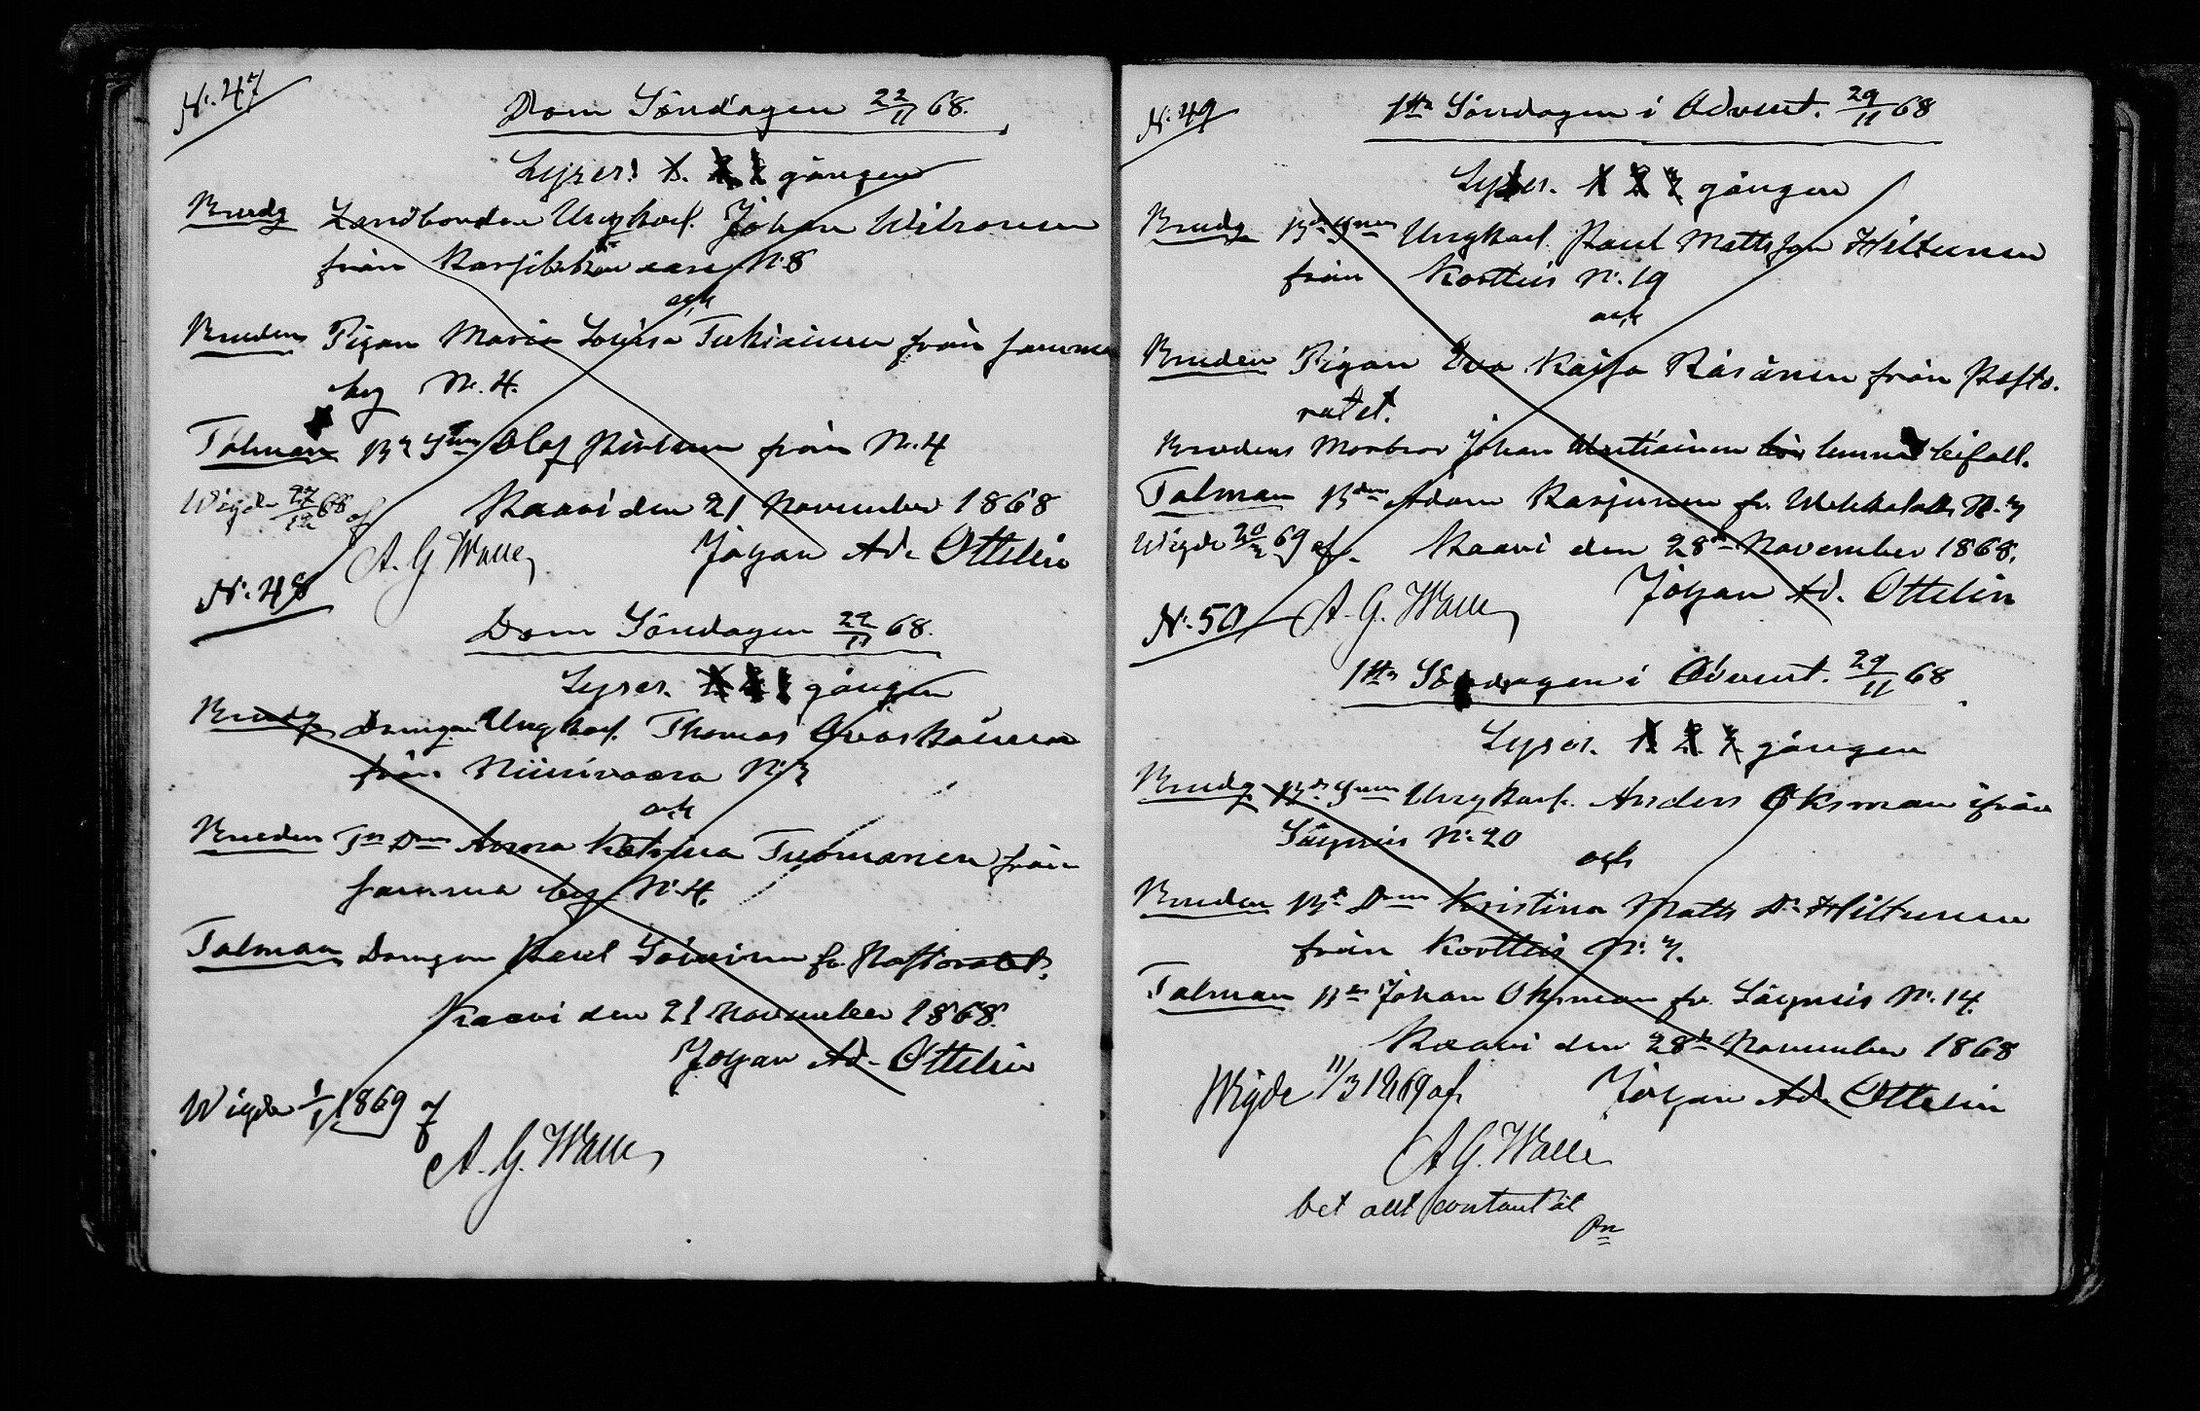 N:47
Dom Söndagen 22/11 68.
Lyses 1. 2 3 gången
Brudg Landbonden Ungkarl. Johan Wilhonen
från N:8
och
Bruden Pigan Maria Lovisa Tukiainen från samma
by N:4.
Talman Bd Snen Olof från N:4
Wigde 27/12 68 af Kaavi den 21 November 1868
A. G. Walle Johan Ad. Ottelin
N:48
Dom Söndagen 22/11 68.
Lyses. 1 2 3 gången
Brudg Drängen Ungkarl. Thomas Ovaskainen
från Niinivaara N:3
och
Bruden Anna Katrina Tuomanen från
samma by N:4.
Talman Drängen Paul Toivinen fr. Pastoratet.
Kaavi den 21 November 1868.
Johan Ad. Ottelin
Wigde 1/1 1869 af
A. G. Walle
N:49
1sta Söndagen i Advent. 29/11 68
Lyses. 1 2 3 gången
Brudg Bde Snen Ungkarl. Paul Mattsson Hiltunen
från Kortteis N:19
och
Bruden Pigan Eva Kaisa Räsänen från Pasto-
ratet.
Brudens Morbror Johan bifall.
Talman Bden Adam Karjunen fr.
Wigde 69 af. Kaavi den 28de November 1868.
A. G. Walle Johan Ad. Ottelin
N:50
1sta Söndagen i Advent. 29/11 68
Lyses. 1 2 3 gången
Brudg Bde Snen Ungkarl. Anders Öksman ifrån
Säyneis N:20
och
Bruden Bde Dren Kristina Matts Dr Hiltunen
från Kortteis N:7.
Talman Bden Johan Öksman fr. Säyneis N:14.
Kaavi den 28de November 1868
Wigde 11/3 1869 af. Johan Ad. Ottelin
A G. Walle
bet allt contant åt
Pn